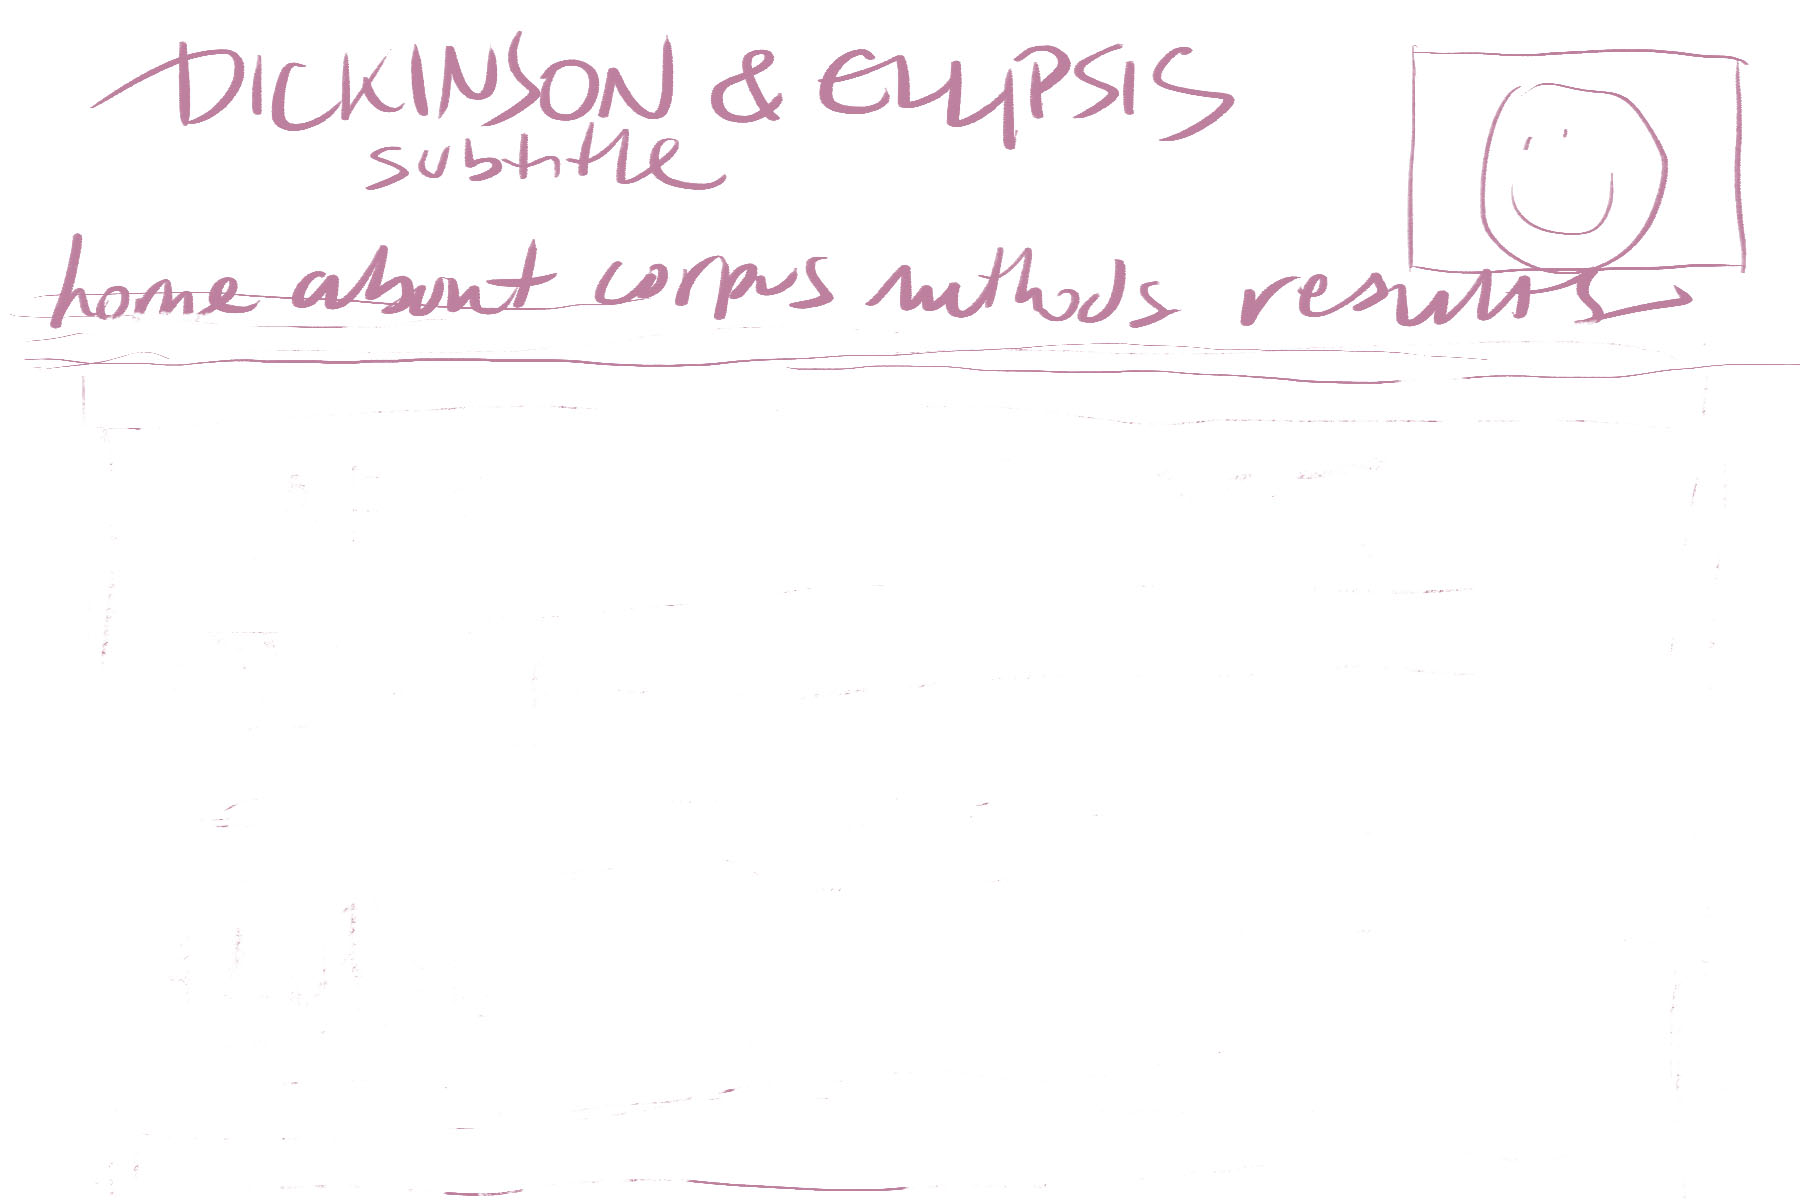 DICKINSON & ELLIPSIS
subtitle
home about corpus methods results